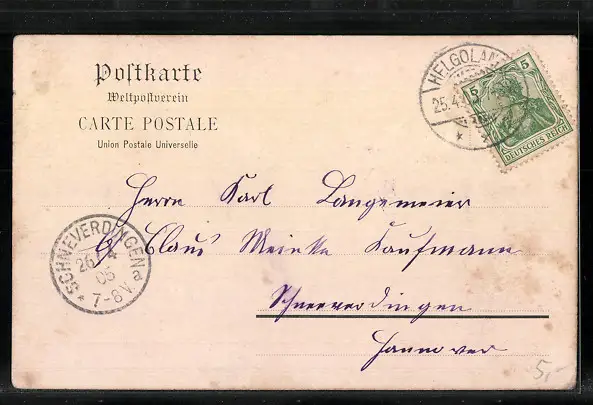 Postkarte
Weltpostverein
CARTE POSTALE
Union Postale Universelle
HELGOLAND
25.4
5 5
DEUTSCHES REICH
Herrn Karl Langemeier
b/ Claus Meinke Kaufmann
Schneverdingen
Hannover
SCHNEVERDINGEN
26 4
05
* 7-8V. a
5,-